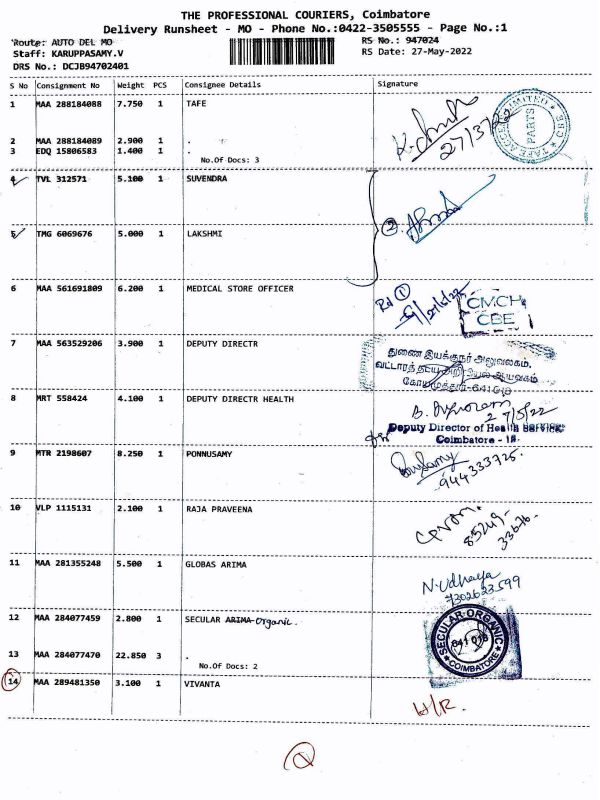 THE PROFESSIONAL COURIERS, Coimbatore
Delivery Runsheet - MO - Phone No.:0422-3505555 - Page No.:1
Route: AUTO DEL MO
RS No.: 947024
Staff: KARUPPASAMY.V
RS Date: 27-May-2022
DRS No.: DCJB94702401
S No Consignment No Weight PCS Consignee Details Signature
1 MAA 288184088 7.750 1 TAFE
2 MAA 288184089 2.900 1 .
3 EDQ 15806583 1.400 1 .
No.Of Docs: 3
TAFE ACCESS LIMITED
PARTS
CBE
4 TVL 312571 5.100 1 SUVENDRA
5 TMG 6069676 5.000 1 LAKSHMI
2
6 MAA 561691809 6.200 1 MEDICAL STORE OFFICER
Rd 1
CMCH
CBE
7 MAA 563529206 3.900 1 DEPUTY DIRECTR
துணை இயக்குநர் அலுவலகம்,
8 MRT 558424 4.100 1 DEPUTY DIRECTR HEALTH
27/5/22
Deputy Director of Health Services
Coimbatore - 18.
9 MTR 2198607 8.250 1 PONNUSAMY
944333725.
10 VLP 1115131 2.100 1 RAJA PRAVEENA
85249-
33676-
11 MAA 281355248 5.500 1 GLOBAS ARIMA
N.Udhaya
7302623599
12 MAA 284077459 2.800 1 SECULAR ARIMA Organic.
13 MAA 284077470 22.850 3 .
No.Of Docs: 2
SECULAR ORGANIC
641 018
COIMBATORE
14 MAA 289481350 3.100 1 VIVANTA